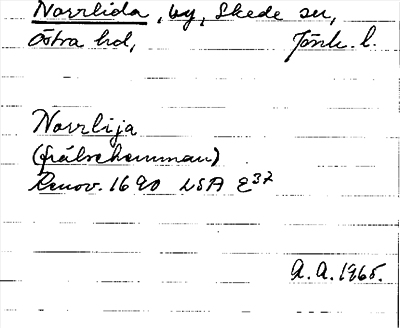 Norrlida, by, Skede sn,
Östra hd, Jönk. l.
Norrlija
(frälsehemman)
Renov. 1690 LSA E37
A.A. 1965.